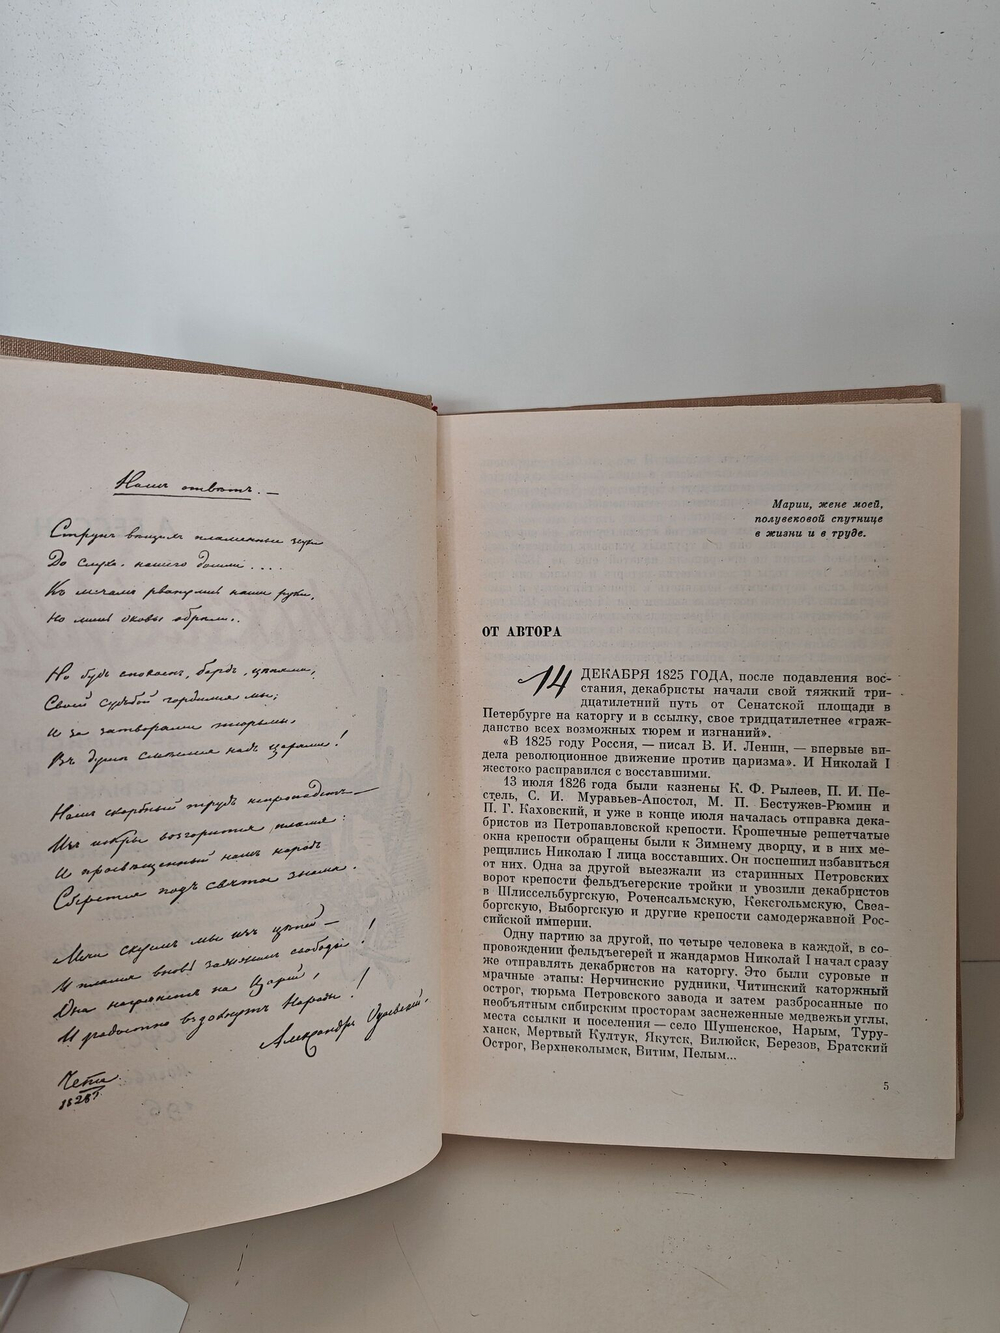 Нашъ отвѣтъ. —
Струнъ вѣщихъ пламенные звуки
До слуха нашего дошли....
Къ мечамъ рванулись наши руки,
Но лишь оковы обрѣли..
Но будь спокоенъ, бардъ, цѣпями,
Своей судьбой гордимся мы;
И за затворами тюрьмы,
Въ душѣ смѣемся надъ царями!
Нашъ скорбный трудъ непропадетъ —
Изъ искры возгорится пламя:
И просвѣщенный нашъ народъ
Сберется подъ святое знамя.
Мечи скуемъ мы изъ цѣпей —
И пламя вновь зажжемъ свободы!
Она нагрянетъ на Царей,
И радостно вздохнутъ Народы!
Александръ Одоевскій.
Чита
1828г.
Марии, жене моей,
полувековой спутнице
в жизни и в труде.
ОТ АВТОРА
14 ДЕКАБРЯ 1825 ГОДА, после подавления вос-
стания, декабристы начали свой тяжкий три-
дцатилетний путь от Сенатской площади в
Петербурге на каторгу и в ссылку, свое тридцатилетнее «граж-
данство всех возможных тюрем и изгнаний».
«В 1825 году Россия, — писал В. И. Ленин, — впервые ви-
дела революционное движение против царизма». И Николай I
жестоко расправился с восставшими.
13 июля 1826 года были казнены К. Ф. Рылеев, П. И. Пе-
стель, С. И. Муравьев-Апостол, М. П. Бестужев-Рюмин и
П. Г. Каховский, и уже в конце июля началась отправка дека-
бристов из Петропавловской крепости. Крошечные решетчатые
окна крепости обращены были к Зимнему дворцу, и в них ме-
рещились Николаю I лица восставших. Он поспешил избавиться
от них. Одна за другой выезжали из старинных Петровских
ворот крепости фельдъегерские тройки и увозили декабристов
в Шлиссельбургскую, Роченсальмскую, Кексгольмскую, Свеа-
боргскую, Выборгскую и другие крепости самодержавной Рос-
сийской империи.
Одну партию за другой, по четыре человека в каждой, в со-
провождении фельдъегерей и жандармов Николай I начал сразу
же отправлять декабристов на каторгу. Это были суровые и
мрачные этапы: Нерчинские рудники, Читинский каторжный
острог, тюрьма Петровского завода и затем разбросанные по
необъятным сибирским просторам заснеженные медвежьи углы,
места ссылки и поселения — село Шушенское, Нарым, Туру-
ханск, Мертвый Култук, Якутск, Вилюйск, Березов, Братский
Острог, Верхнеколымск, Витим, Пелым...
5